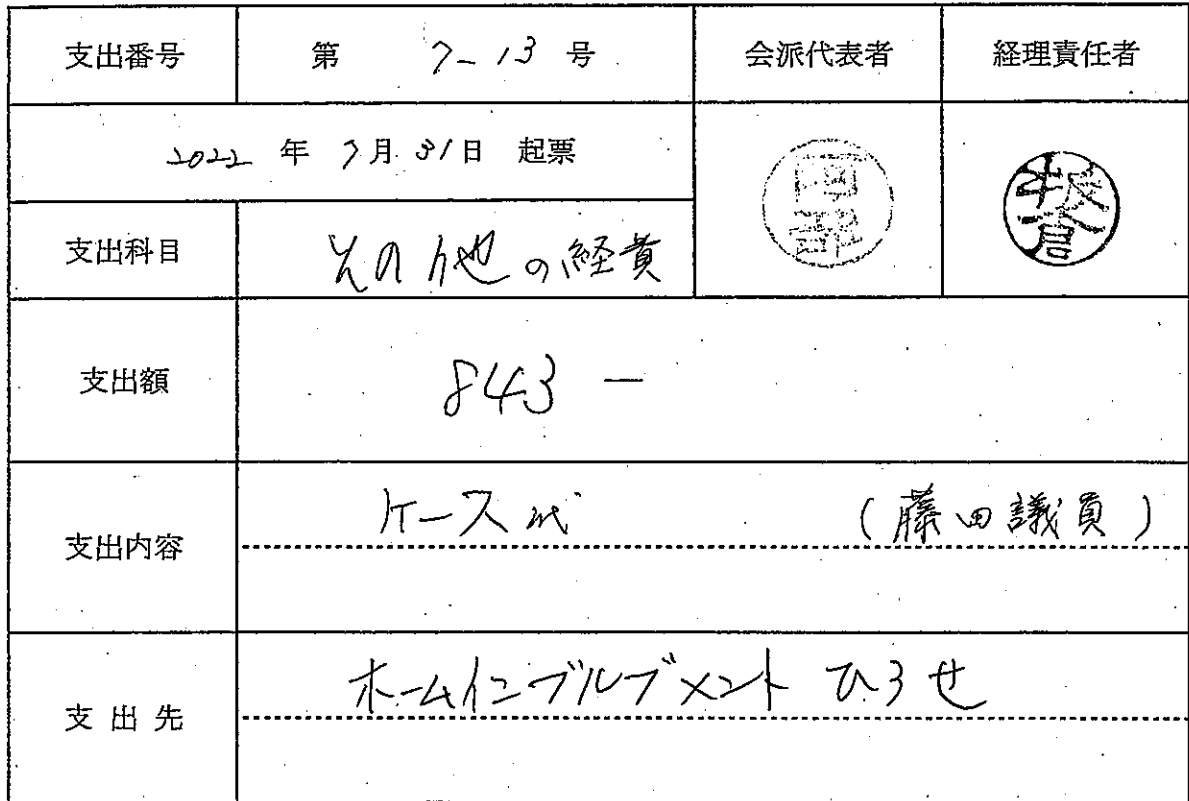 支出番号 第 7-13 号 会派代表者 経理責任者
2022 年 7月 31日 起票
支出科目 その他の経費
阿部
板倉
支出額 843 ー
支出内容 ケース代 (藤田議員)
支出先 ホームインプルブメント ひろせ